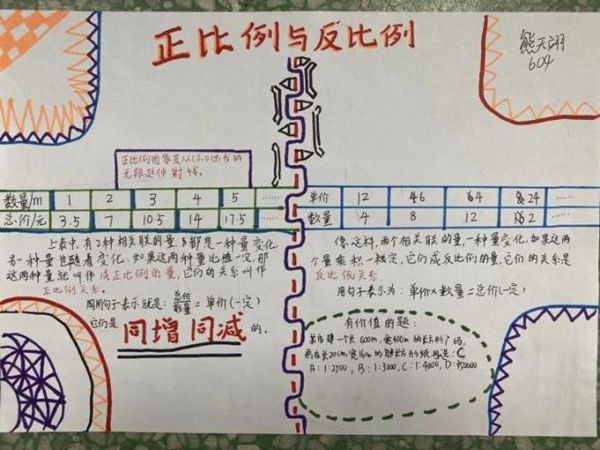 正比例与反比例
熊天翊
604
正比例图像是从(0,0)出发的
无限延伸射线。
数量/m 1 2 3 4 5 ……
总价/元 3.5 7 10.5 14 17.5 ……
上表中,有2种相关联的量,都是一种量变化
另一种量也随着变化,如果这两种量比值一定,那
这两种量就叫作成正比例的量,它们的关系叫作
正比例关系。
用用句子表示就是:总价/数量=单价(一定)
它们是同增同减的。
单价 12 6 4 24 ……
数量 4 8 12 2 ……
像这样,两个相关联的量,一种量变化,如果这两
个量乘积一定,它们成反比例的量,它们的关系是
反比例关系
用句子表示为:单价×数量=总价(一定)
有价值的题:
某市建一个长600m,宽400m的长方形广场,
画在长20cm,宽16cm的长方形纸 选:C
A:1:2500,B:1:3000,C:1:4000,D: